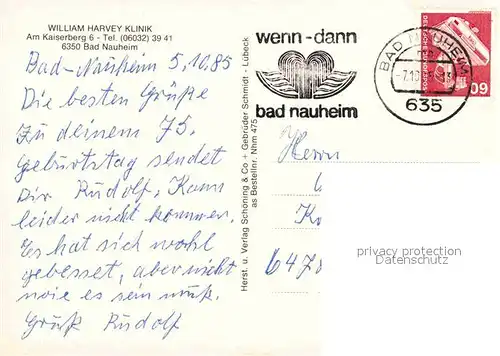 WILLIAM HARVEY KLINIK
Am Kaiserberg 6 - Tel. (06032) 39 41
6350 Bad Nauheim
Bad-Nauheim 5.10.85
Die besten Grüße
Zu deinem 75.
Geburtstag sendet
Dir Rudolf, Kann
leider nicht kommen.
Es hat sich wohl
gebesset, aber nicht
wie es sein muß.
Gruß Rudolf
Herst. u. Verlag Schöning & Co + Gebrüder Schmidt - Lübeck
as Bestellnr. Nhm 475
wenn-dann
bad nauheim
BAD NAUHEIM 1
635
DEUTSCHE BUNDESPOST
60
Herrn
647
privacy protection
Datenschutz